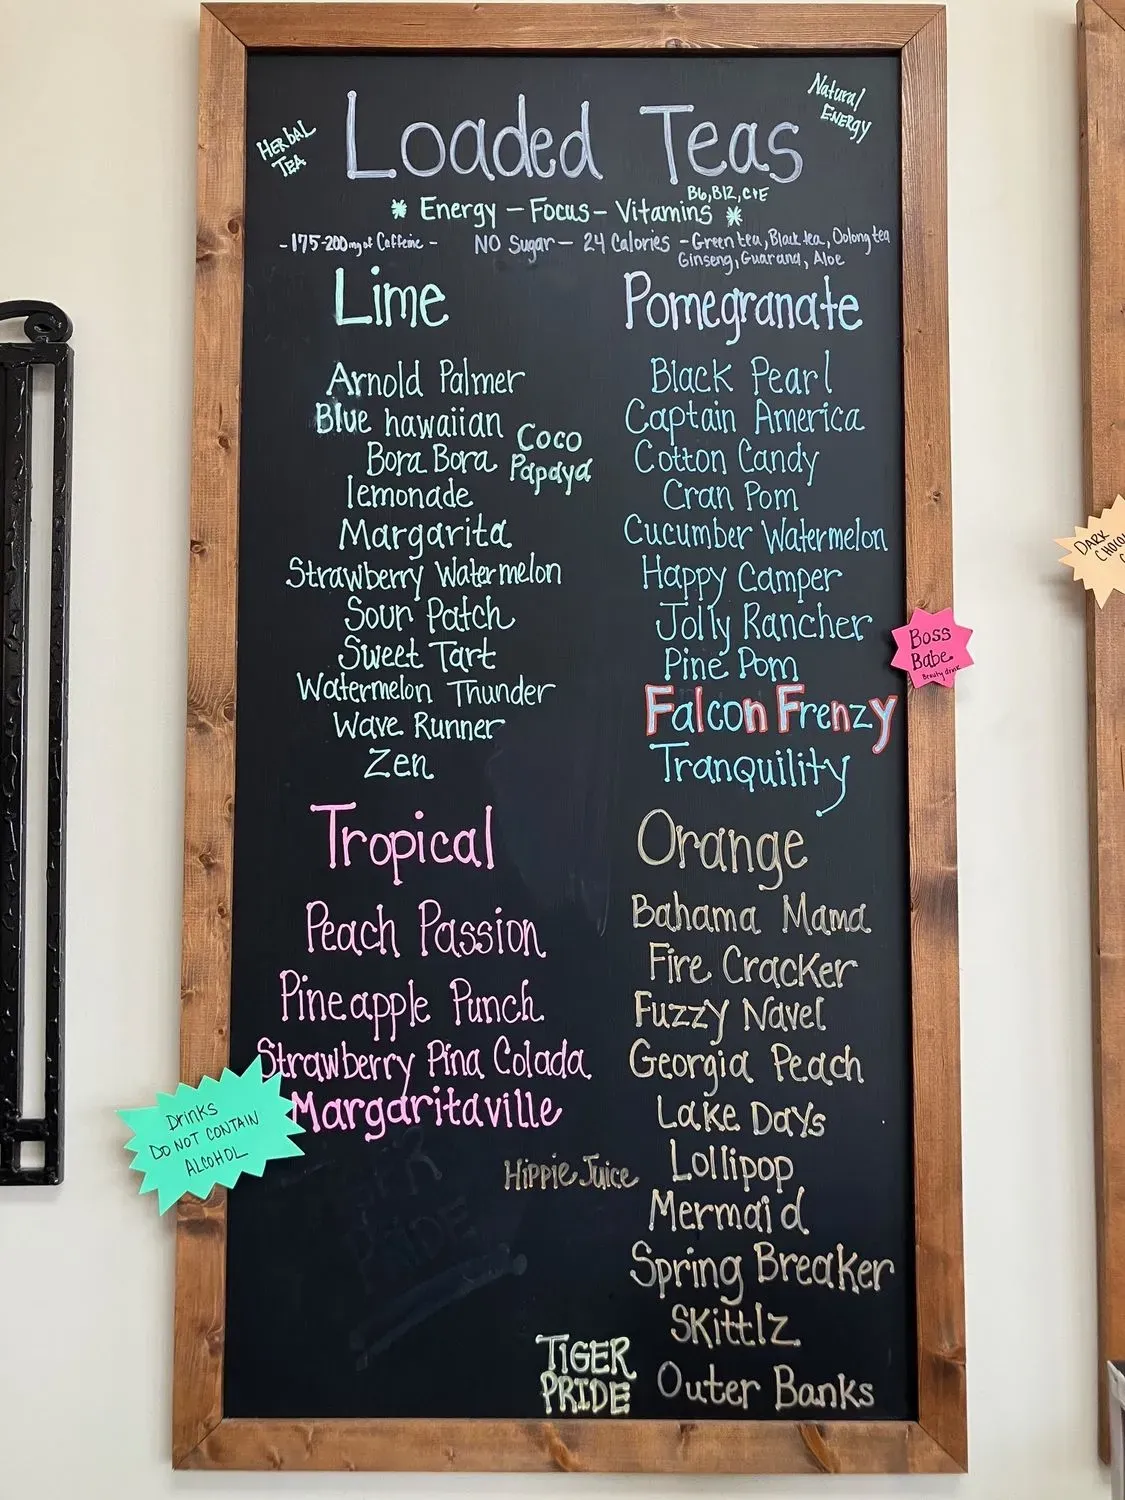 Herbal
Tea
Natural
Energy
Loaded Teas
B6, B12, C+E
* Energy - Focus - Vitamins *
- 175-200mg of Caffeine - NO Sugar - 24 Calories - Green tea, Black tea, Oolong tea
Ginseng, Guarana, Aloe
Lime
Arnold Palmer
Blue hawaiian
Coco
Papaya
Bora Bora
lemonade
Margarita
Strawberry Watermelon
Sour Patch
Sweet Tart
Watermelon Thunder
Wave Runner
Zen
Pomegranate
Black Pearl
Captain America
Cotton Candy
Cran Pom
Cucumber Watermelon
Happy Camper
Jolly Rancher
Pine Pom
Falcon Frenzy
Tranquility
Tropical
Peach Passion
Pineapple Punch
Strawberry Pina Colada
Margaritaville
Orange
Bahama Mama
Fire Cracker
Fuzzy Navel
Georgia Peach
Lake Days
Hippie Juice
Lollipop
Mermaid
Spring Breaker
Skittlz
TIGER
PRIDE
Outer Banks
Drinks
DO NOT CONTAIN
ALCOHOL
Boss
Babe
Beauty drink
DARK